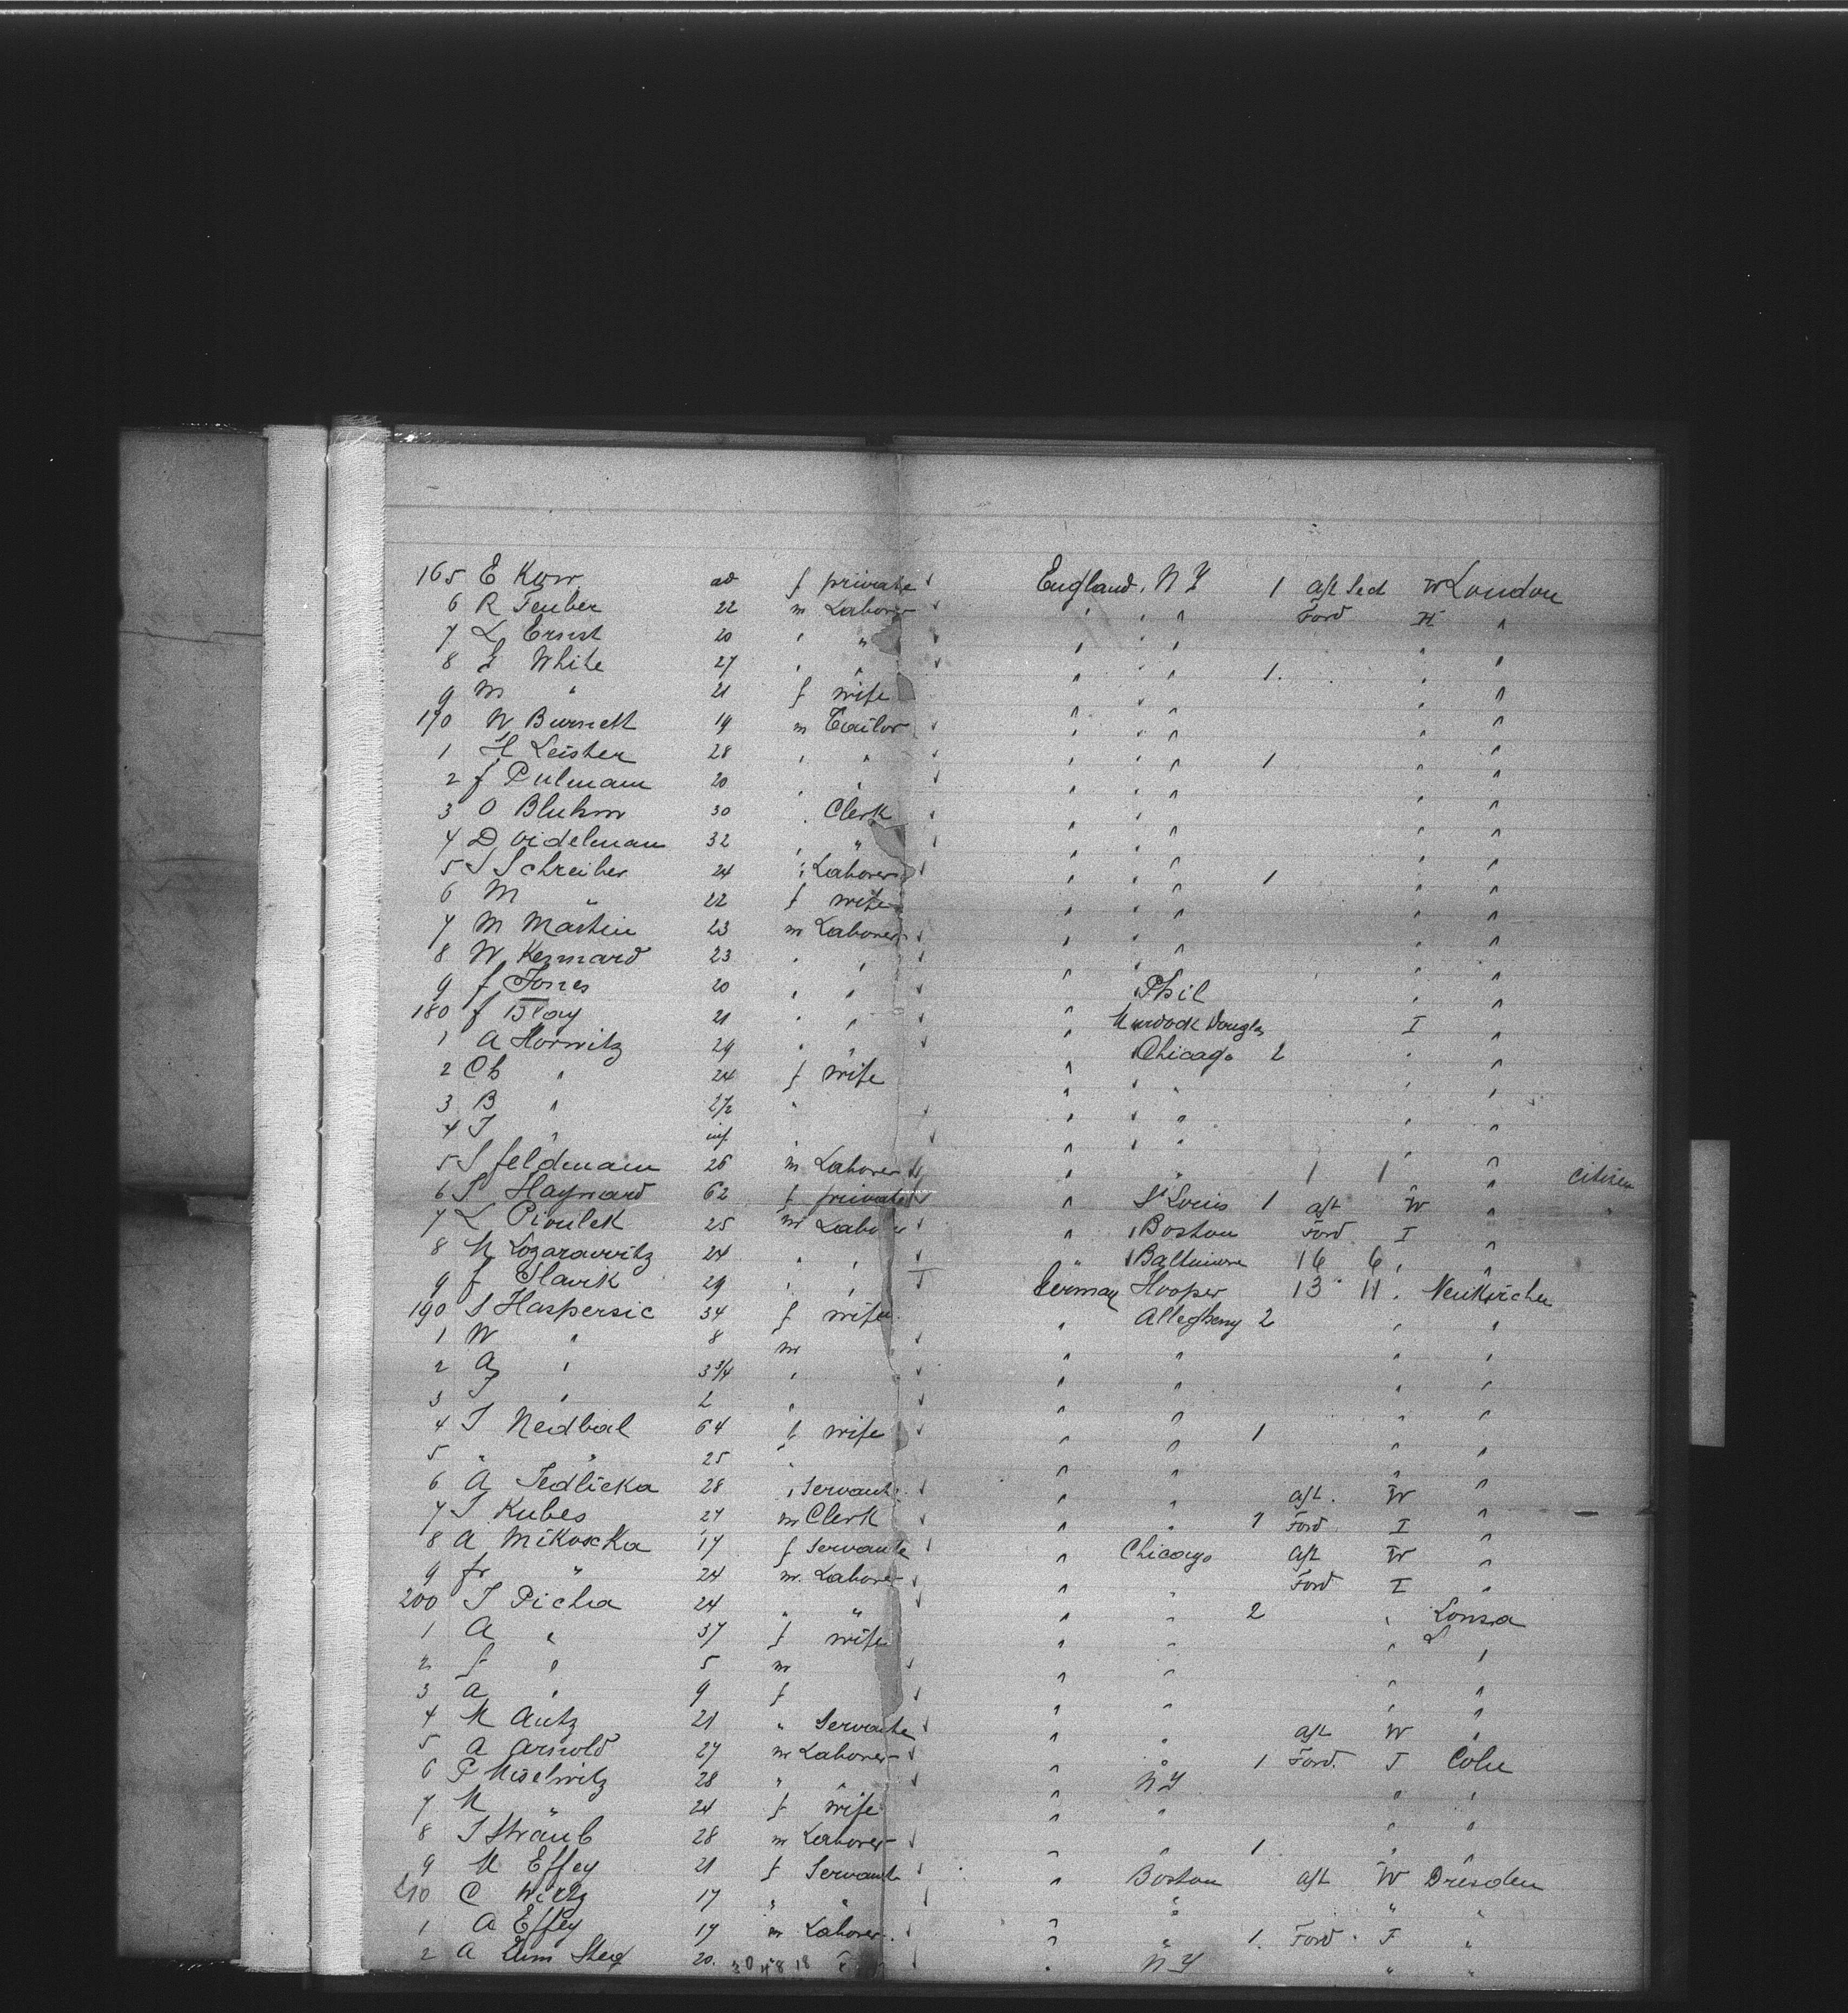 165 E Korr ad f private England N Y 1 aft Sect W London
6 R Teuber 22 m Laborer " " " Ford II "
7 L Ernst 20 " " " " " " "
8 E White 27 " " " " " 1 " "
9 M " 21 f wife " " " " "
170 W Burnett 19 m Tailor " " " " "
1 H Leisher 28 " " " " " 1 " "
2 J Pulmann 20 " " " " " " "
3 O Bluhm 30 " Clerk " " " " "
4 D Oidelman 32 " " " " " " "
5 S Schreiber 24 " Laborer " " " 1 " "
6 M " 22 f wife " " " " "
7 M Martin 23 m Laborer " " " " "
8 W Kennard 23 " " " " " " "
9 J Jones 20 " " " Phil " "
180 J Blay 21 " " " Murdock Douglas I "
1 A Horwitz 29 " " " Chicago 2 " "
2 Ch " 24 f wife " " " " "
3 B " 2 1/2 " " " " " "
4 J " inf " " " " " "
5 S Feldmann 26 m Laborer " " 1 1 " citizen
6 S Haynard 62 f private " St Louis 1 aft W " "
7 L Pivulek 25 m Laborer " Boston Ford I
8 M Lozarowitz 24 " " " Baltimore 16 6 " "
9 J Slavik 29 " " Germany Hooper 13 11 " Neukirchen
190 S Haspersic 34 f wife " Allegheny 2 " "
1 W " 8 m " " " "
2 A " 3 3/4 " " " " "
3 J " 2 " " " " "
4 J Nedbal 64 f wife " " 1 " "
5 " " 25 " " " " "
6 A Jedlicka 28 " Servant " " aft W "
7 J Kubes 27 m Clerk " " 1 Ford I "
8 A Mikoscka 17 f Servant " Chicago aft W "
9 Fr " 24 m Laborer " " Ford I "
200 J Picha 24 " " " " 2 " Lonza
1 A " 37 f wife " " " "
2 J " 5 m " " " "
3 A " 9 f " " " "
4 M Antz 21 " Servant " " aft W "
5 A Arnold 27 m Laborer " " 1 Ford I Coln
6 P Miselwitz 28 " " " N Y " "
7 M " 24 f wife " " " "
8 J Straub 28 m Laborer " " 1 " "
9 M Effey 21 f Servant " Boston aft W Dresden
210 C Wirtz 17 " " " " " "
1 A Effey 17 m Laborer " " 1 Ford I "
2 A 20 " N Y " "